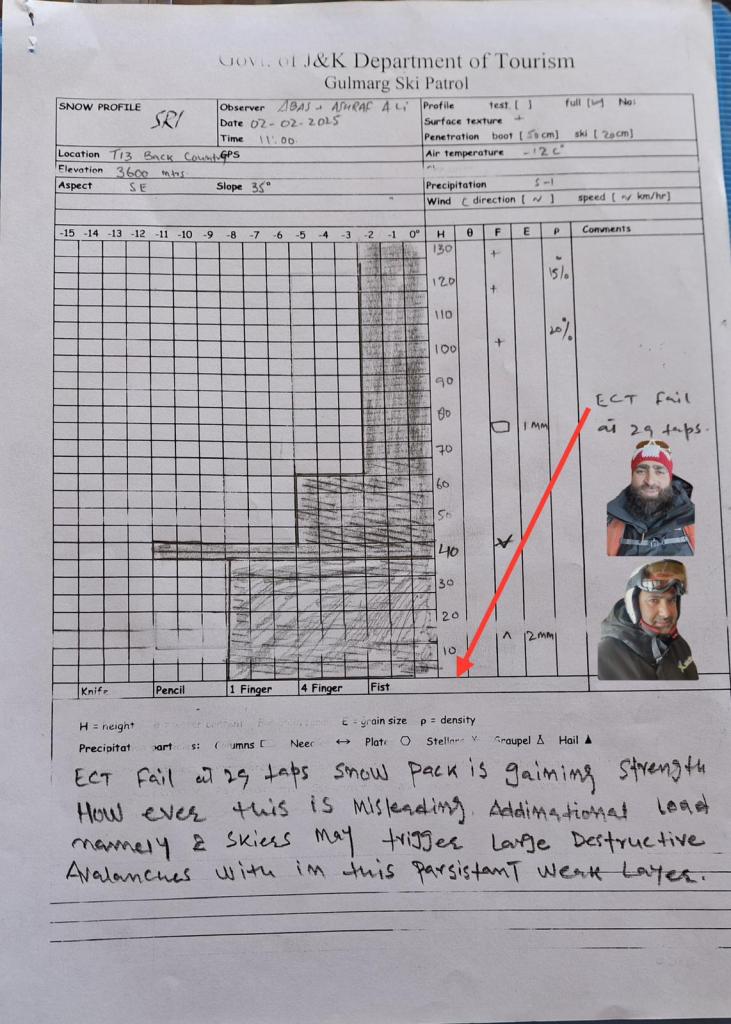 Govt. of J&K Department of Tourism
Gulmarg Ski Patrol
SNOW PROFILE
SR1
Observer ABAS + ASHRAF ALi
Date 02-02-2025
Time 11:00
Profile test [ ] full [ ] No:
Surface texture +
Penetration boot [50cm] ski [20cm]
Location T13 Back Country GPS
Air temperature -12 C°
Elevation 3600 mtrs
Aspect SE Slope 35°
Precipitation S-1
Wind direction [ ~ ] speed [ ~ km/hr]
-15 -14 -13 -12 -11 -10 -9 -8 -7 -6 -5 -4 -3 -2 -1 0° H θ F E ρ Comments
130 +
15%
120 +
110
20%
100 +
90
ECT fail
80 1 mm at 29 taps.
70
60
50
40
30
20
10 ^ 2mm
Knife Pencil 1 Finger 4 Finger Fist
H = height E = grain size ρ = density
Plate Graupel Hail ▲
ECT Fail at 29 taps snow pack is gaining strength
How ever this is misleading. Addinational load
namely 2 skiers may trigger Large Destructive
Avalanches with in this parsistant weak Layer.